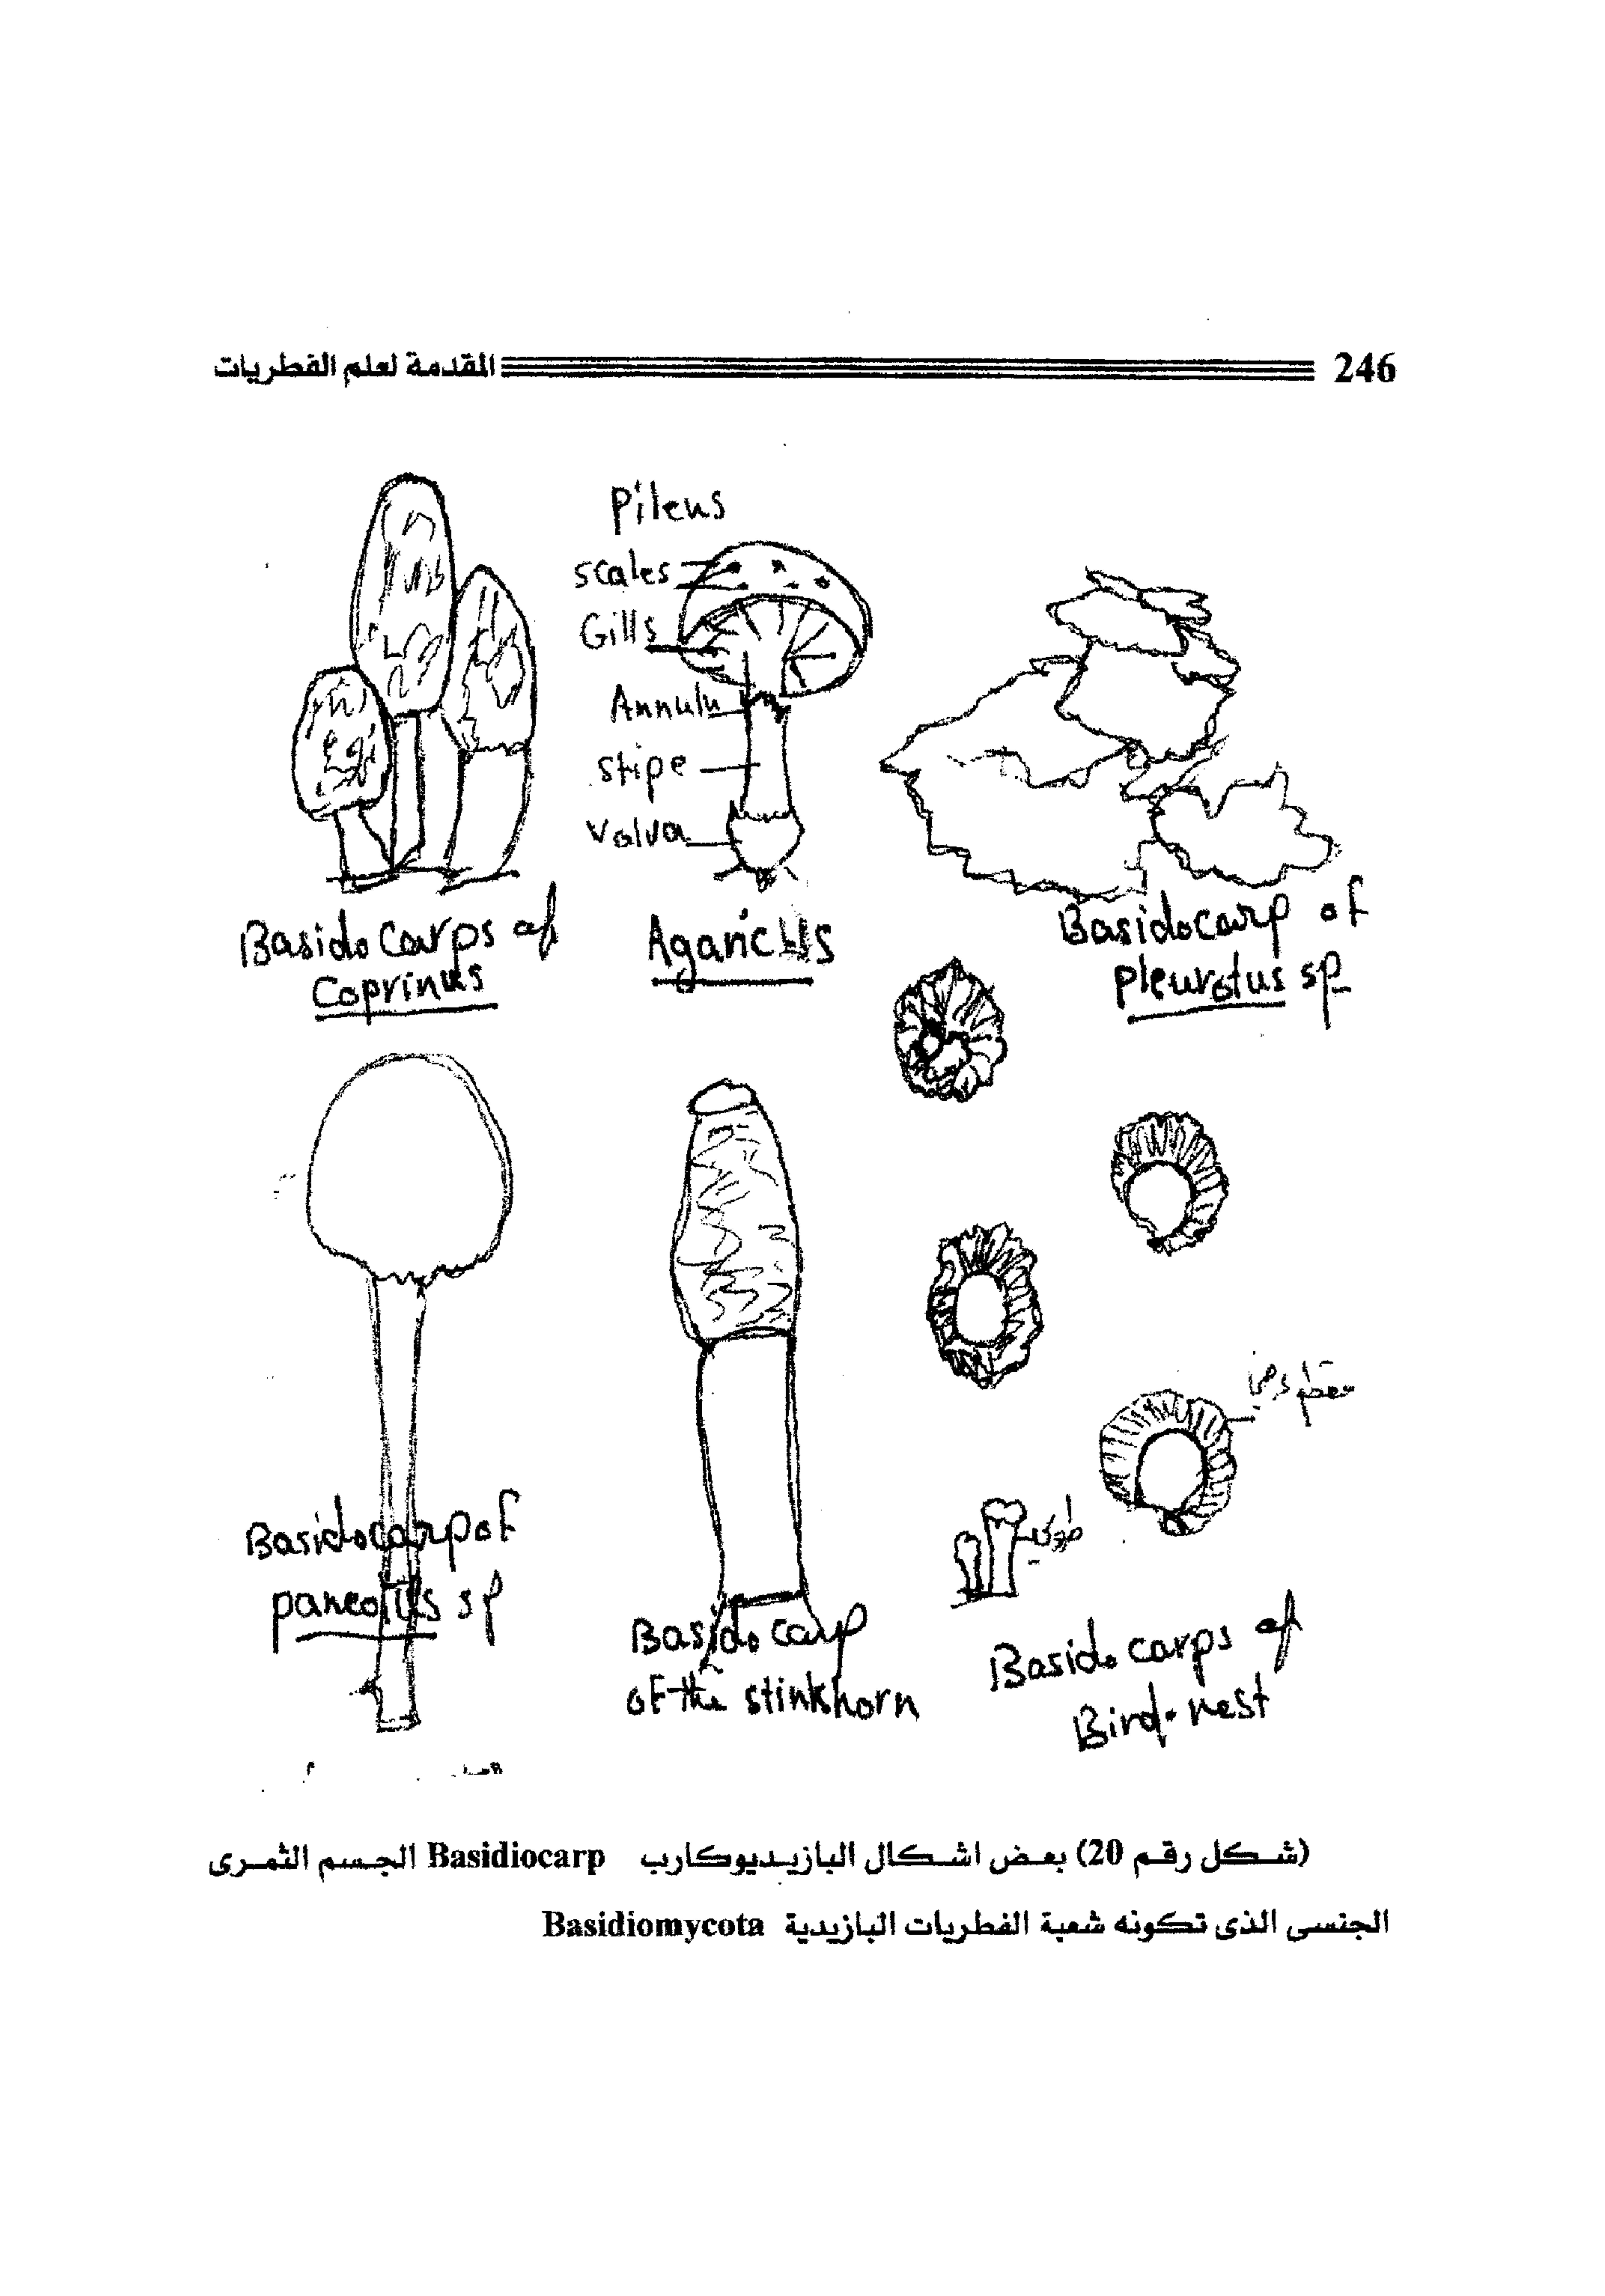 246 المقدمة لعلم الفطريات
Pileus
scales
Gills
Annulu
stipe
Valva
Basido Carps of
Coprinus
Agaricus
Basidocarp of
pleurotus sp
Basidocarp of
paneolus sp
Basido carp
of the stinkhorn
طولى
Basido carps of
Bird-nest
(شكل رقم 20) بعض اشكال البازيديوكارب Basidiocarp الجسم الثمرى
الجنسى الذى تكونه شعبة الفطريات البازيدية Basidiomycota